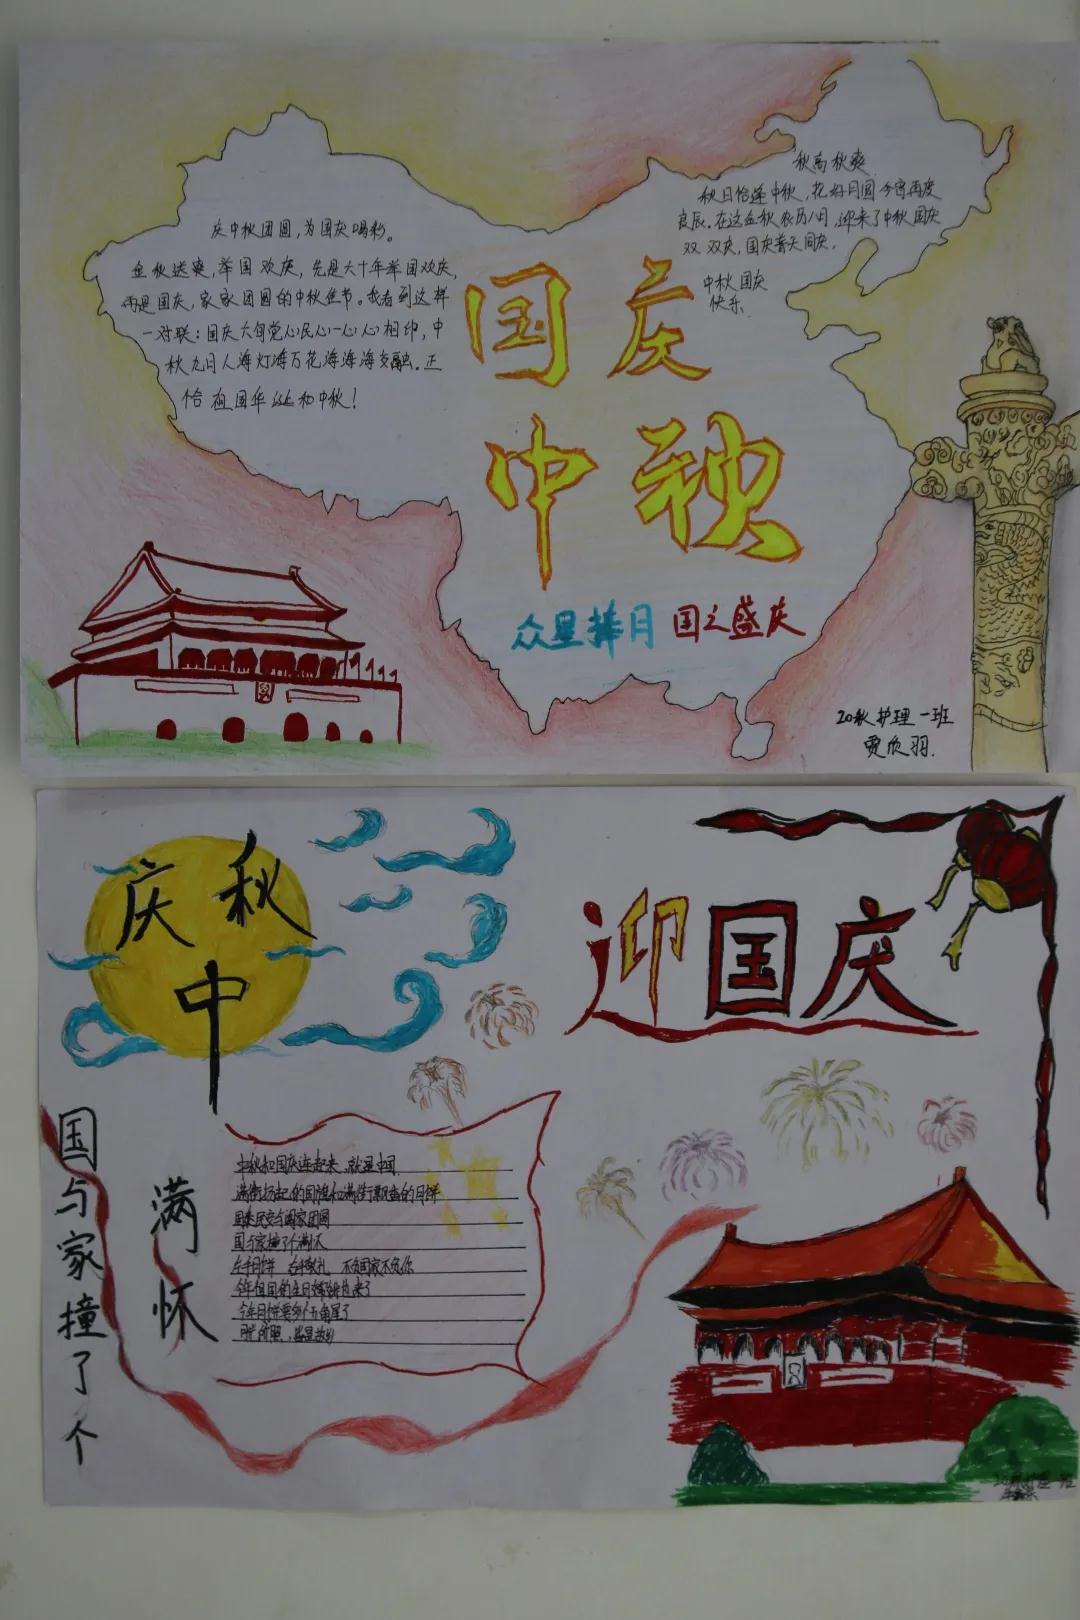 庆中秋团圆,为国庆喝彩。
金秋送爽,举国欢庆,先是六十年举国欢庆,
再是国庆,家家团圆的中秋佳节。我看到这样
一对联:国庆六旬党心民心一心心相印,中
秋九日人海灯海万花海海海交融。正
恰祖国华诞和中秋!
秋高秋爽
秋日恰逢中秋,花好月圆今宵再度
良辰。在这金秋农历八月,迎来了中秋国庆
双双庆,国庆普天同庆,
中秋国庆
快乐
国庆
中秋
众星捧月 国之盛庆
20秋护理一班
贾欣羽.
庆中秋
迎国庆
国与家撞了个
满怀
中秋和国庆连起来,就是中国
满街扬起的国旗和满街飘香的月饼
国泰民安与阖家团圆
国与家撞了个满怀
左手月饼 右手敬礼 不负国家不负你
今年祖国的生日嫦娥也来了
今年月饼要多个五角星了